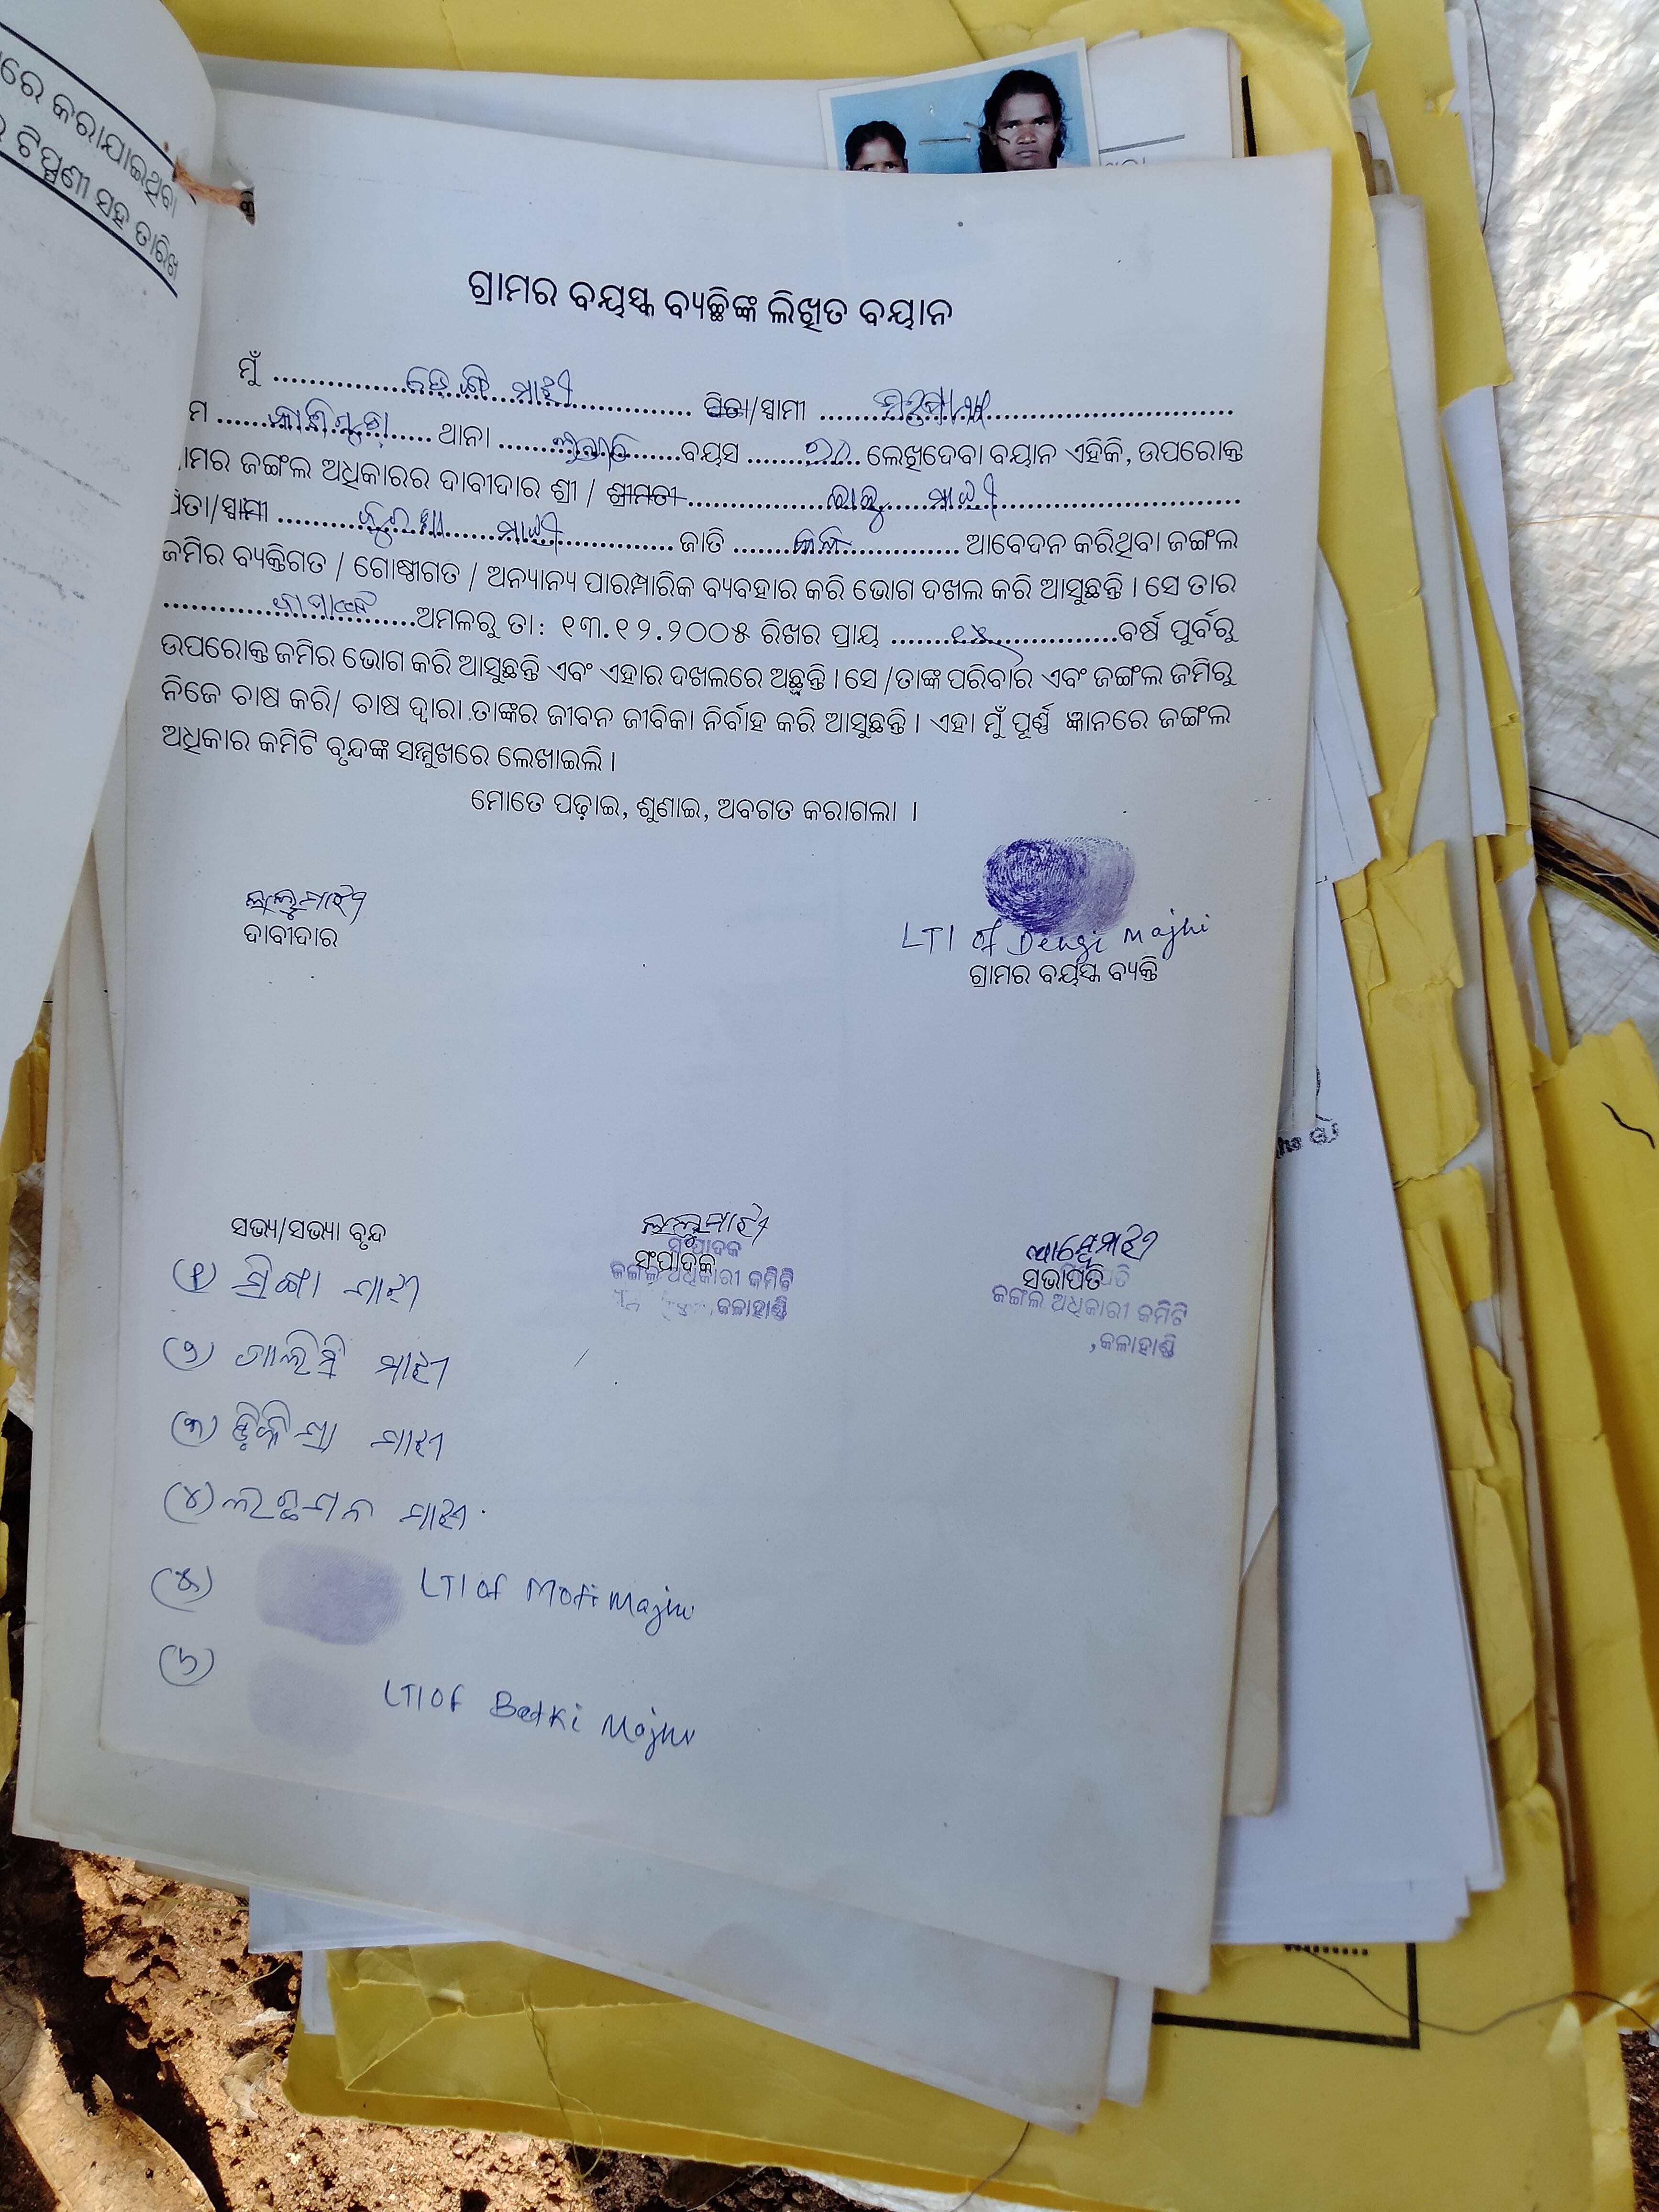 ରେ କରାଯାଇଥିବା
ଟିପ୍ପଣୀ ସହ ତାରିଖ
ଗ୍ରାମର ବୟସ୍କ ବ୍ୟକ୍ତିଙ୍କ ଲିଖିତ ବୟାନ
ମୁଁ ........ ମାଝୀ ........ ପିତା/ସ୍ୱାମୀ ........
ମ ........ ଥାନା ........ ବୟସ ........ ଲେଖିଦେବା ବୟାନ ଏହିକି, ଉପରୋକ୍ତ
ାମର ଜଙ୍ଗଲ ଅଧିକାରର ଦାବୀଦାର ଶ୍ରୀ / ଶ୍ରୀମତୀ ........ ମାଝୀ ........
ପିତା/ସ୍ୱାମୀ ........ ମାଝୀ ........ ଜାତି ........ ଆବେଦନ କରିଥିବା ଜଙ୍ଗଲ
ଜମିର ବ୍ୟକ୍ତିଗତ / ଗୋଷ୍ଠୀଗତ / ଅନ୍ୟାନ୍ୟ ପାରମ୍ପାରିକ ବ୍ୟବହାର କରି ଭୋଗ ଦଖଲ କରି ଆସୁଛନ୍ତି । ସେ ତାର
........ ଅମଳରୁ ତା: ୧୩.୧୨.୨୦୦୫ ରିଖର ପ୍ରାୟ ........ ବର୍ଷ ପୁର୍ବରୁ
ଉପରୋକ୍ତ ଜମିର ଭୋଗ କରି ଆସୁଛନ୍ତି ଏବଂ ଏହାର ଦଖଲରେ ଅଛନ୍ତି । ସେ /ତାଙ୍କ ପରିବାର ଏବଂ ଜଙ୍ଗଲ ଜମିରୁ
ନିଜେ ଚାଷ କରି/ ଚାଷ ଦ୍ୱାରା ତାଙ୍କର ଜୀବନ ଜୀବିକା ନିର୍ବାହ କରି ଆସୁଛନ୍ତି । ଏହା ମୁଁ ପୂର୍ଣ୍ଣ ଜ୍ଞାନରେ ଜଙ୍ଗଲ
ଅଧିକାର କମିଟି ବୃନ୍ଦଙ୍କ ସମ୍ମୁଖରେ ଲେଖାଇଲି ।
ମୋତେ ପଢ଼ାଇ, ଶୁଣାଇ, ଅବଗତ କରାଗଲା ।
ଲାଲୁ ମାଝୀ
ଦାବୀଦାର
LTI of Dengi Majhi
ଗ୍ରାମର ବୟସ୍କ ବ୍ୟକ୍ତି
ସଭ୍ୟ/ସଭ୍ୟା ବୃନ୍ଦ
ଲାଲୁ ମାଝୀ
ସଂପାଦକ
ସଂପାଦକ
ଜଙ୍ଗଲ ଅଧିକାରୀ କମିଟି
,କଳାହାଣ୍ଡି
ମାଝୀ
ସଭାପତି
ଜଙ୍ଗଲ ଅଧିକାରୀ କମିଟି
,କଳାହାଣ୍ଡି
(୧) ମାଝୀ
(୨) ମାଝୀ
(୩) ମାଝୀ
(୪) ଲଚ୍ଛମନ ମାଝୀ
(୫) LTI of Moti Majhi
(୬) LTI of Batki Majhi